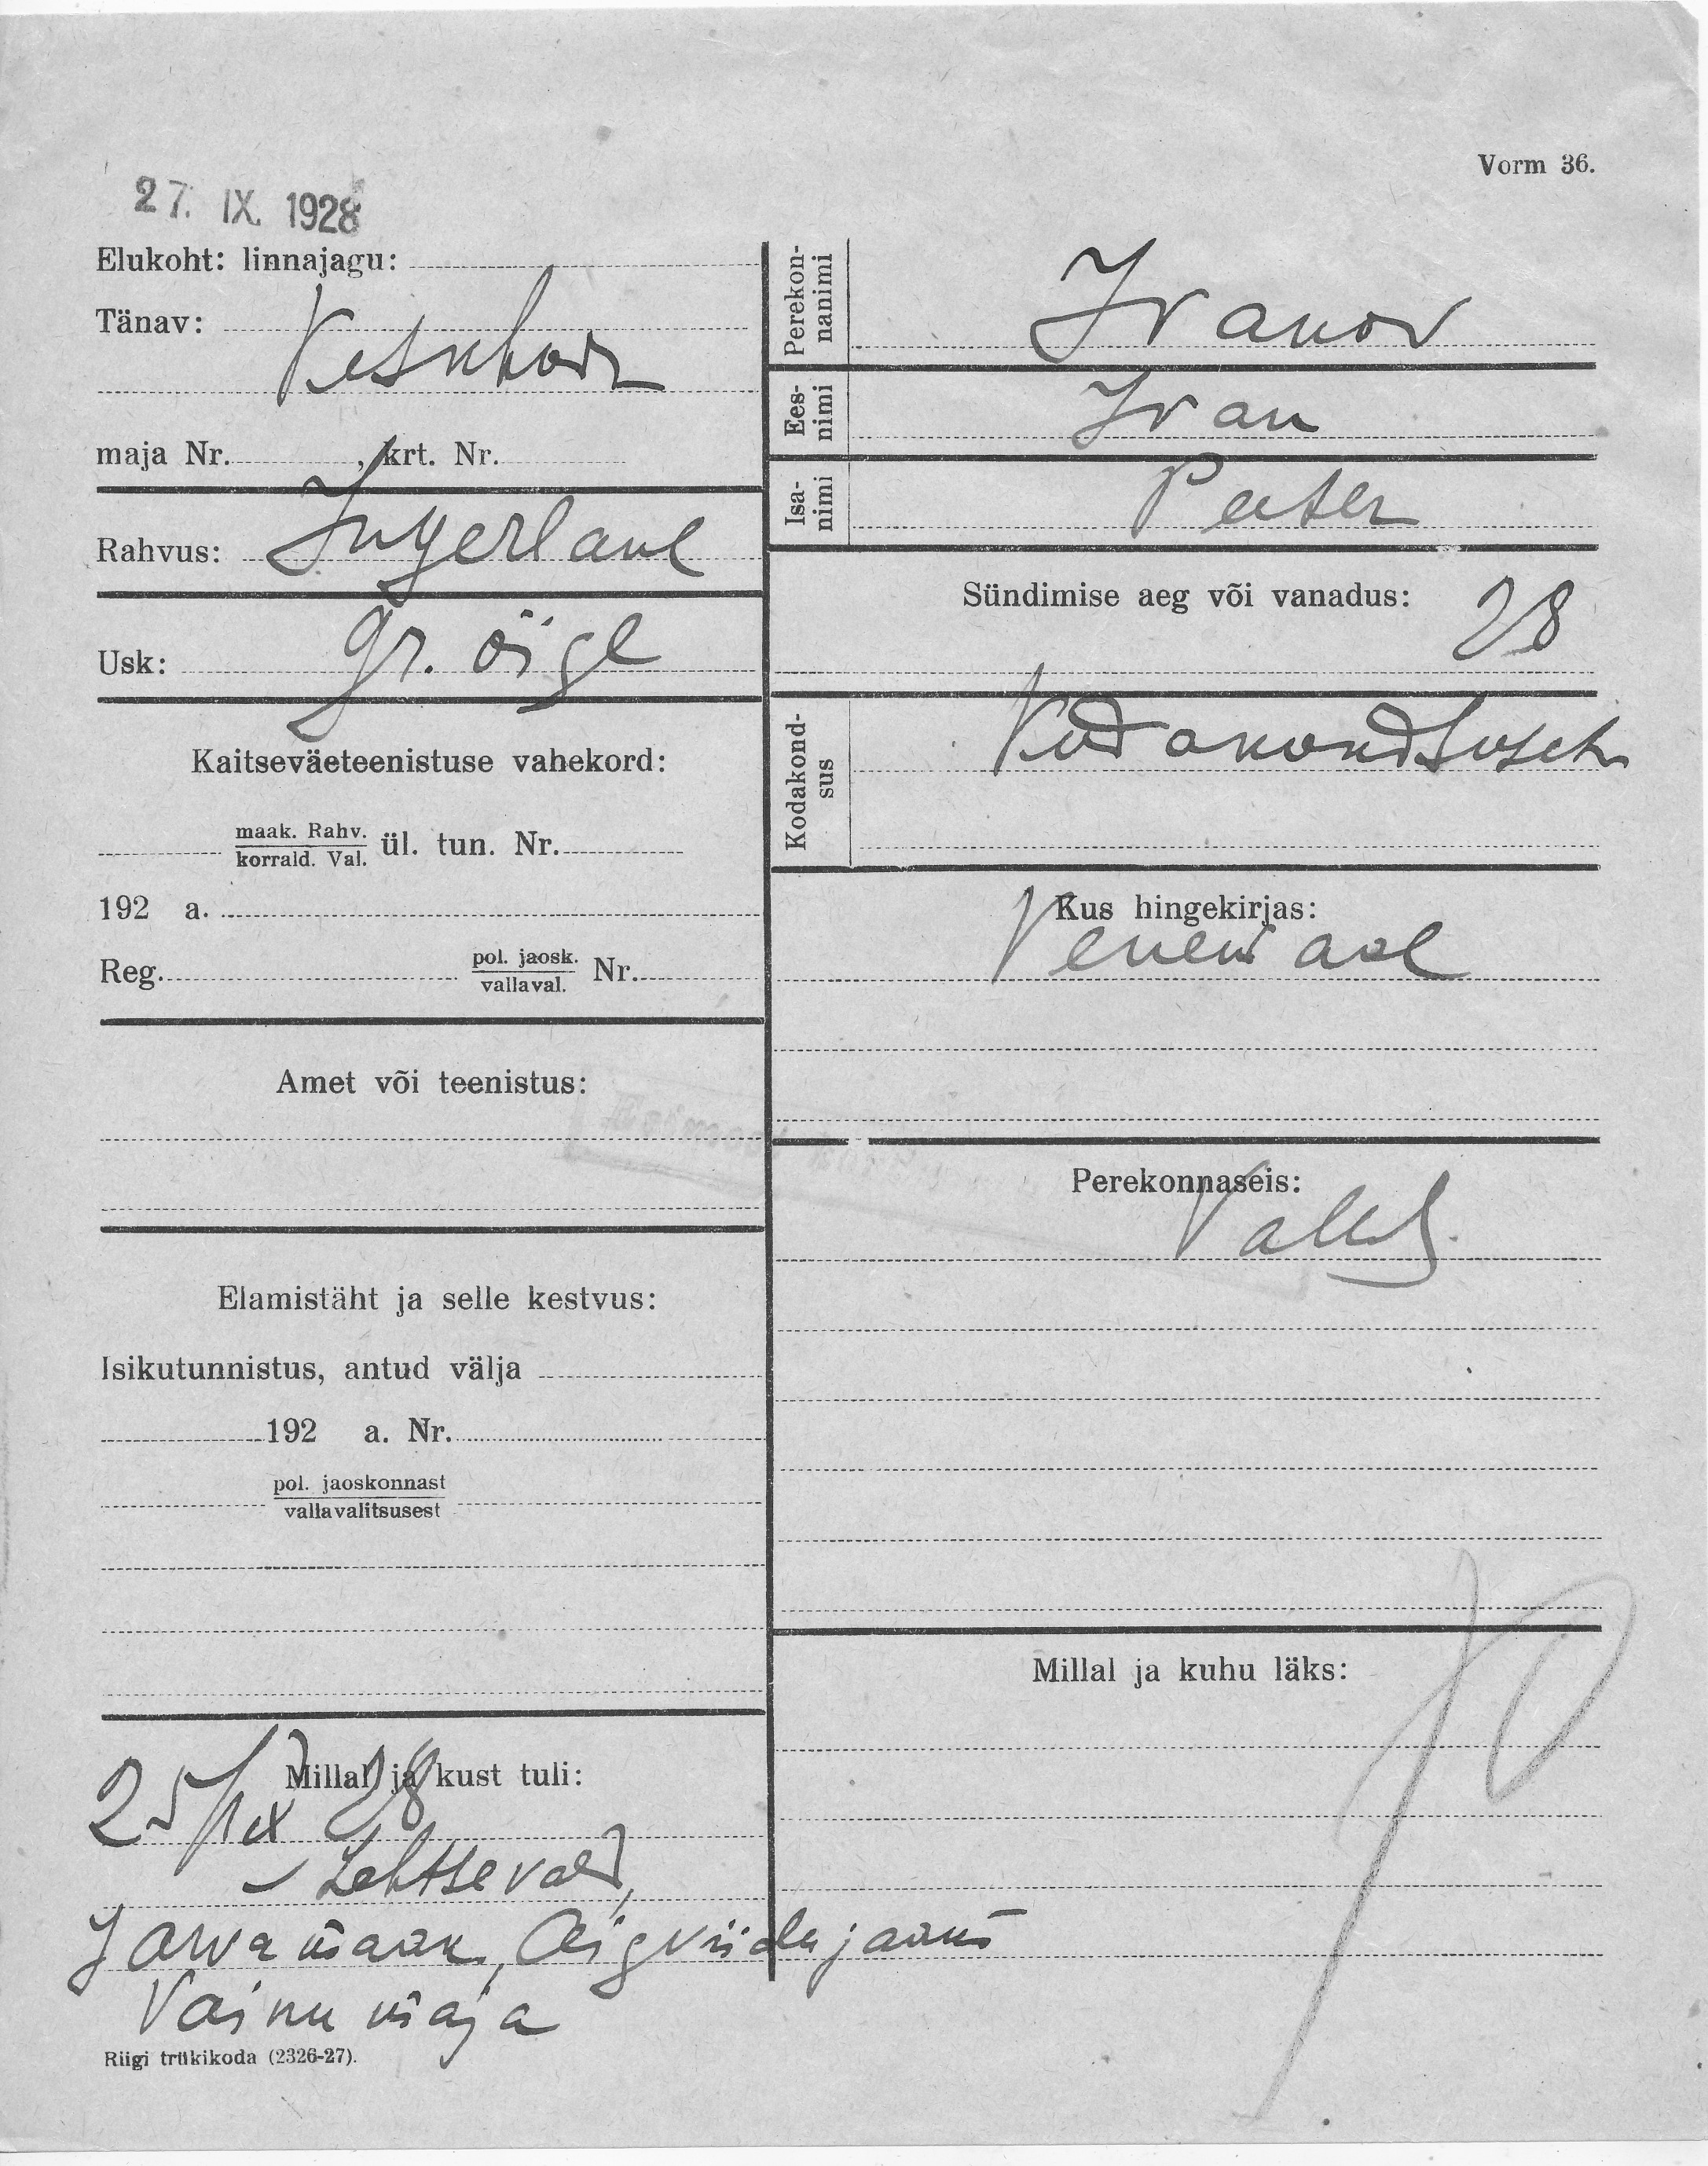 Vorm 36.
27. IX. 1928
Elukoht: linnajagu:
Tänav:
maja Nr. , krt. Nr.
Rahvus: Ingerlane
Usk: Gr. õige
Kaitseväeteenistuse vahekord:
maak. Rahv.
korrald. Val.
ül. tun. Nr.
192 a.
Reg. pol. jaosk.
vallaval. Nr.
Amet või teenistus:
Elamistäht ja selle kestvus:
Isikutunnistus, antud välja
192 a. Nr.
pol. jaoskonnast
vallavalitsusest
Millal ja kust tuli:
25/IX 28
Lehtse vald,
Järvamaa, Aigviidu jaam
Vainu maja
Riigi trükikoda (2326-27).
Perekon-
nanimi
Ivanov
Ees-
nimi
Ivan
Isa-
nimi
Peeter
Sündimise aeg või vanadus: 28
Kodakond-
sus
Kodakondsuseta
Kus hingekirjas:
Venemaal
Perekonnaseis:
Vallal.
Millal ja kuhu läks: